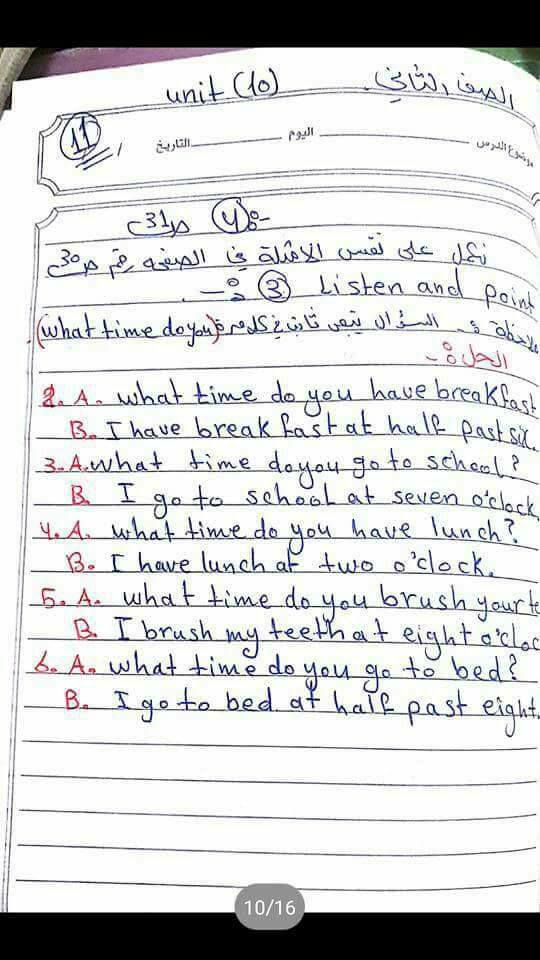 unit (10) الصف الثاني.
11
موضوع الدرس اليوم التاريخ
ص31 (4):-
نكمل على نفس الامثلة في الصفحه رقم ص30
(3) Listen and point :-
ملاحظة :- السؤال يبقى ثابت في كل مرة (what time do you).
الحل :-
2. A. what time do you have breakfast
B. I have breakfast at half past six.
3. A. what time do you go to school?
B. I go to school at seven o'clock.
4. A. what time do you have lunch?
B. I have lunch at two o'clock.
5. A. what time do you brush your te
B. I brush my teeth at eight o'cloc
6. A. what time do you go to bed?
B. I go to bed at half past eight.
10/16